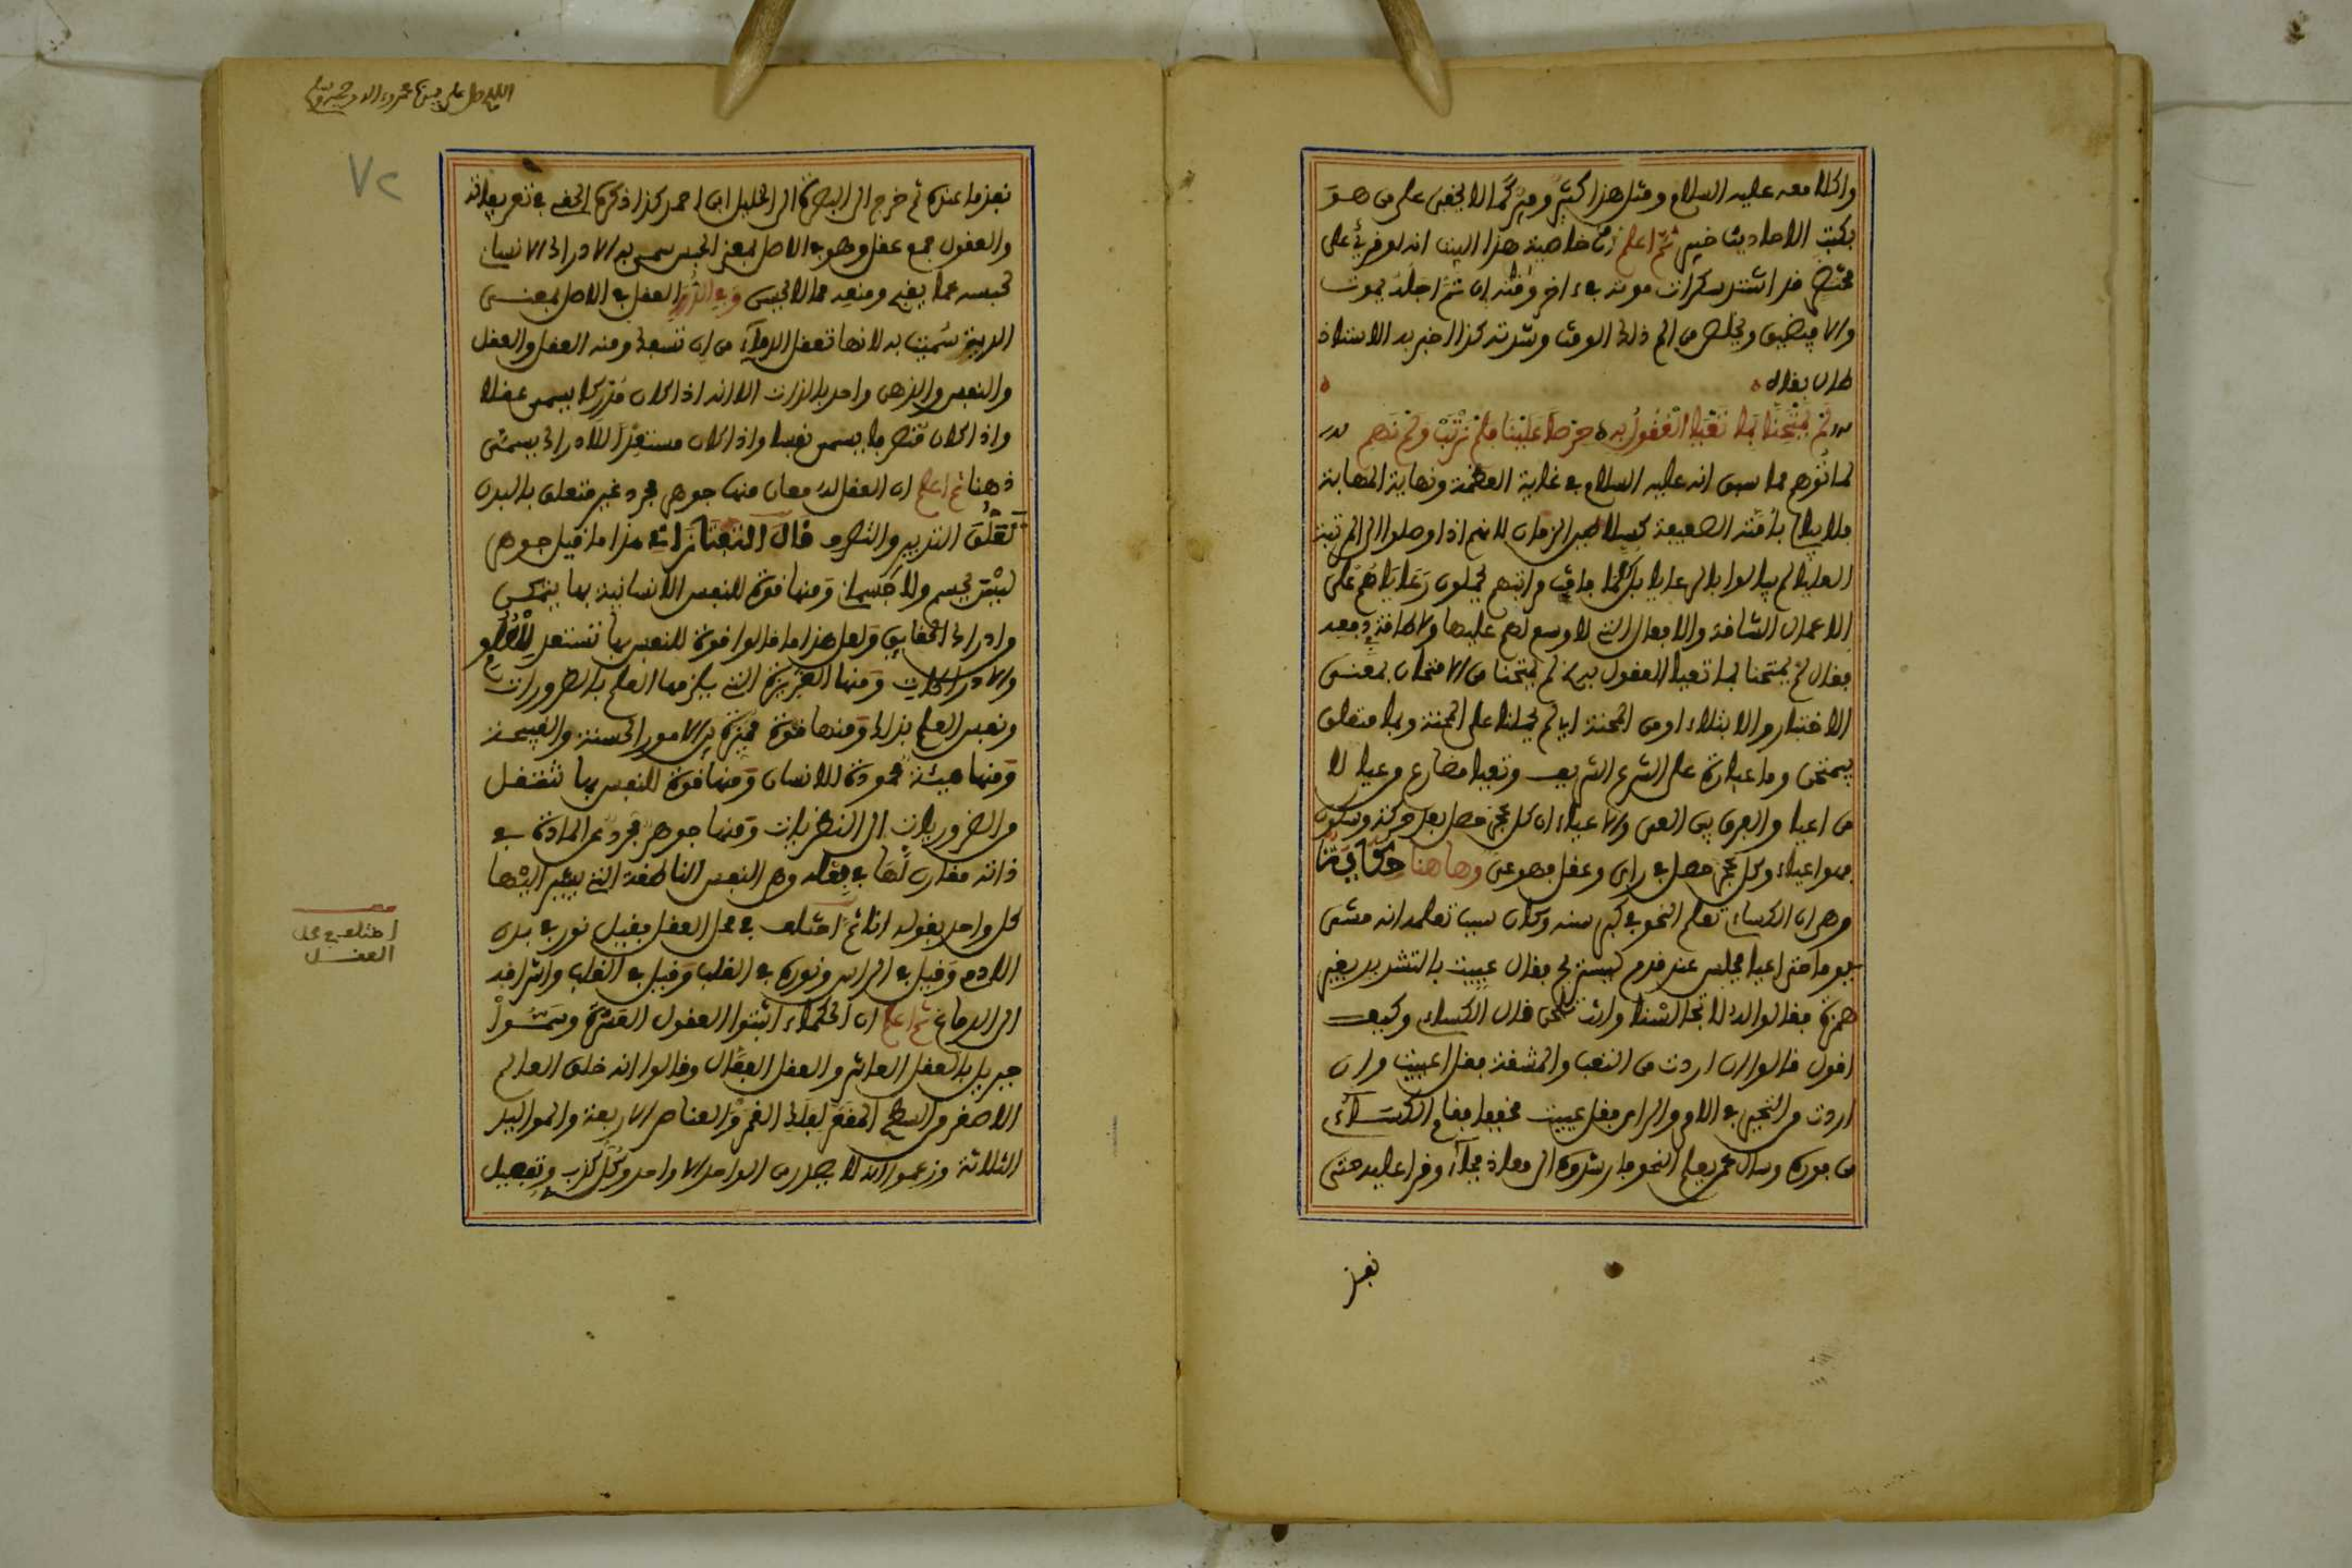 واكلا معه عليه السلام ومثل هذا كثير وميز كما لا يخفى على من هو
بكتب الاحاديث خبير ثم اعلم ان خاصية هذا البيت انه لو قرئ على
محتضر قد اشتد سكرات موته بعد اخر وقته ان تم اجله يموت
والا فيضيق ويخلص من الم ذلك الوقت وشدته كذا اخبر به الاستاذ
طاب بقاه
لم يمتحنا بما تعيا العقول به حرصا علينا فلم نرتب ولم نهم
لما توهم مما سبق انه عليه السلام في غاية العظمة ونهاية المهابة
فلا يبالى بأمته الضعيفة كسلاطين الزمان لانهم اذا وصلوا الى المرتبة
العليا لم يبالوا بالرعايا بل كلما فاقت مراتبهم يحملون رعاياهم على
الاعمال الشاقة والافعال التي لا وسع لهم عليها ولا طاقة دفعه
فقال لم يمتحنا بما تعيا العقول به لم يمتحنا من الامتحان بمعنى
الاختبار والابتلاء او من المحنة اي لم يحملنا على المحنة وبما متعلق
بيمتحن وما عبارة على الشرع الشريف وتعيا مضارع وعيا لا
من اعيا والفرق بين العى والاعياء ان كل عجز حصل بعد حركة وسكون
فهو اعياء وكل عجز حصل في راى وعقل فهو عى وهاهنا حكاية
وهي ان الكساء تعلم النحو في كبر سنه وكان سبب تعلمه انه مشى
يوما حتى اعيا فجلس عند قوم ليستريح فقال عييت بالتشديد بغير
همزة فقالوا له لا تجالسنا وانت تلحن قال الكساء وكيف
اقول قالوا ان اردت من التعب والمشقة فقل اعييت وان
اردت من التحير في الامر والراى فقل عييت مخففا فقام الكساء
من فوره وسال عمن يعلم النحو فارشدوه الى معاذ فجاء وقرا عليه حتى
نفذ
اللهم صل على سيدنا محمد واله وصحبه وسلم
٧٢
نفذ ما عنده ثم خرج الى البصرة الى الخليل ابن احمد كذا ذكره الحفى في تعريفاته
والعقول جمع عقل وهو في الاصل بمعنى الحبس سمى به الادراك الانسان
لحبسه عما يقبح ومنعه عما لا يحسن وفي الدرر العقل في الاصل بمعنى
الدية سميت به لانها تعقل الدماء من ان تسفك ومنه العقل والعقل
والنفس والذهن واحد بالذات الا انه اذا كان مدركا يسمى عقلا
واذا كان متصرفا يسمى نفسا واذا كان مستعدا للادراك يسمى
ذهنا ثم اعلم ان العقل له معان منها جوهر مجرد غير متعلق بالبدن
تعلق التدبير والتصرف قال التفتازانى هذا ما قيل جوهر
ليس بجسم ولا جسمانى ومنها قوة للنفس الانسانية بها يتمكن
وادراك الحقايق ولعل هذا ما قالوا قوة للنفس بها تستعد للعلوم
والادراكات ومنها الغريزة التي يلزمها العلم بالضرورات
ونفس العلم بذلك ومنها قوة مميزة بين الامور الحسنة والقبيحة
ومنها هيئة محمودة للانسان ومنها قوة للنفس بها تنتقل
من الضروريات الى النظريات ومنها جوهر مجرد عن المادة في
ذاته مقارن لها في فعله وهي النفس الناطقة التي يشير اليها
كل واحد بقوله انا ثم اختلف في محل العقل فقيل نور في بدن
الادمى وقيل في الراس ونوره في القلب وقيل في القلب واشراقه
الى الدماغ ثم اعلم ان الحكماء اثبتوا العقول العشرة وسموا
جبريل بالعقل العاشر والعقل الفعال وقالوا انه خلق العالم
الاصغر من السطح المقعر لفلك القمر والعناصر الاربعة والمواليد
الثلاثة وزعموا انه لا يصدر من الواحد الا واحد وكل كذب وتفصيل
اختلف في محل
العقل